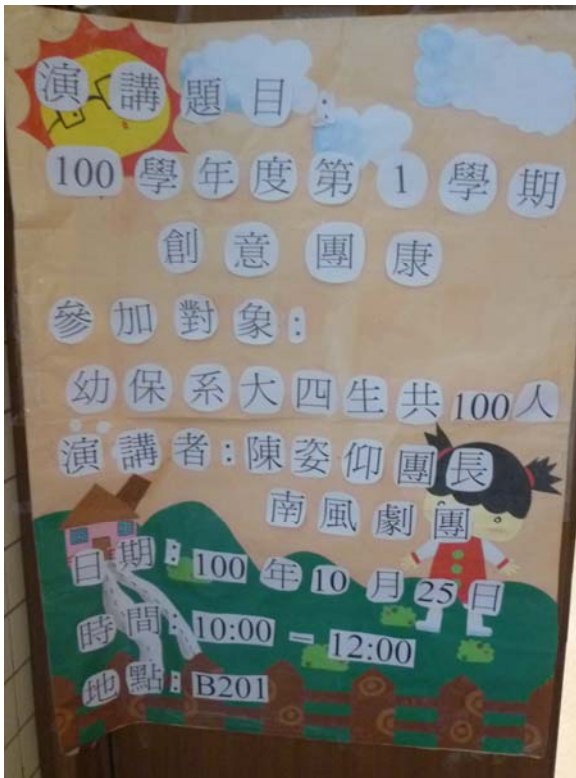 演講題目：
100學年度第1學期
創意團康
參加對象：
幼保系大四生共100人
演講者：陳姿仰團長
南風劇團
日期：100年10月25日
時間：10:00－12:00
地點：B201